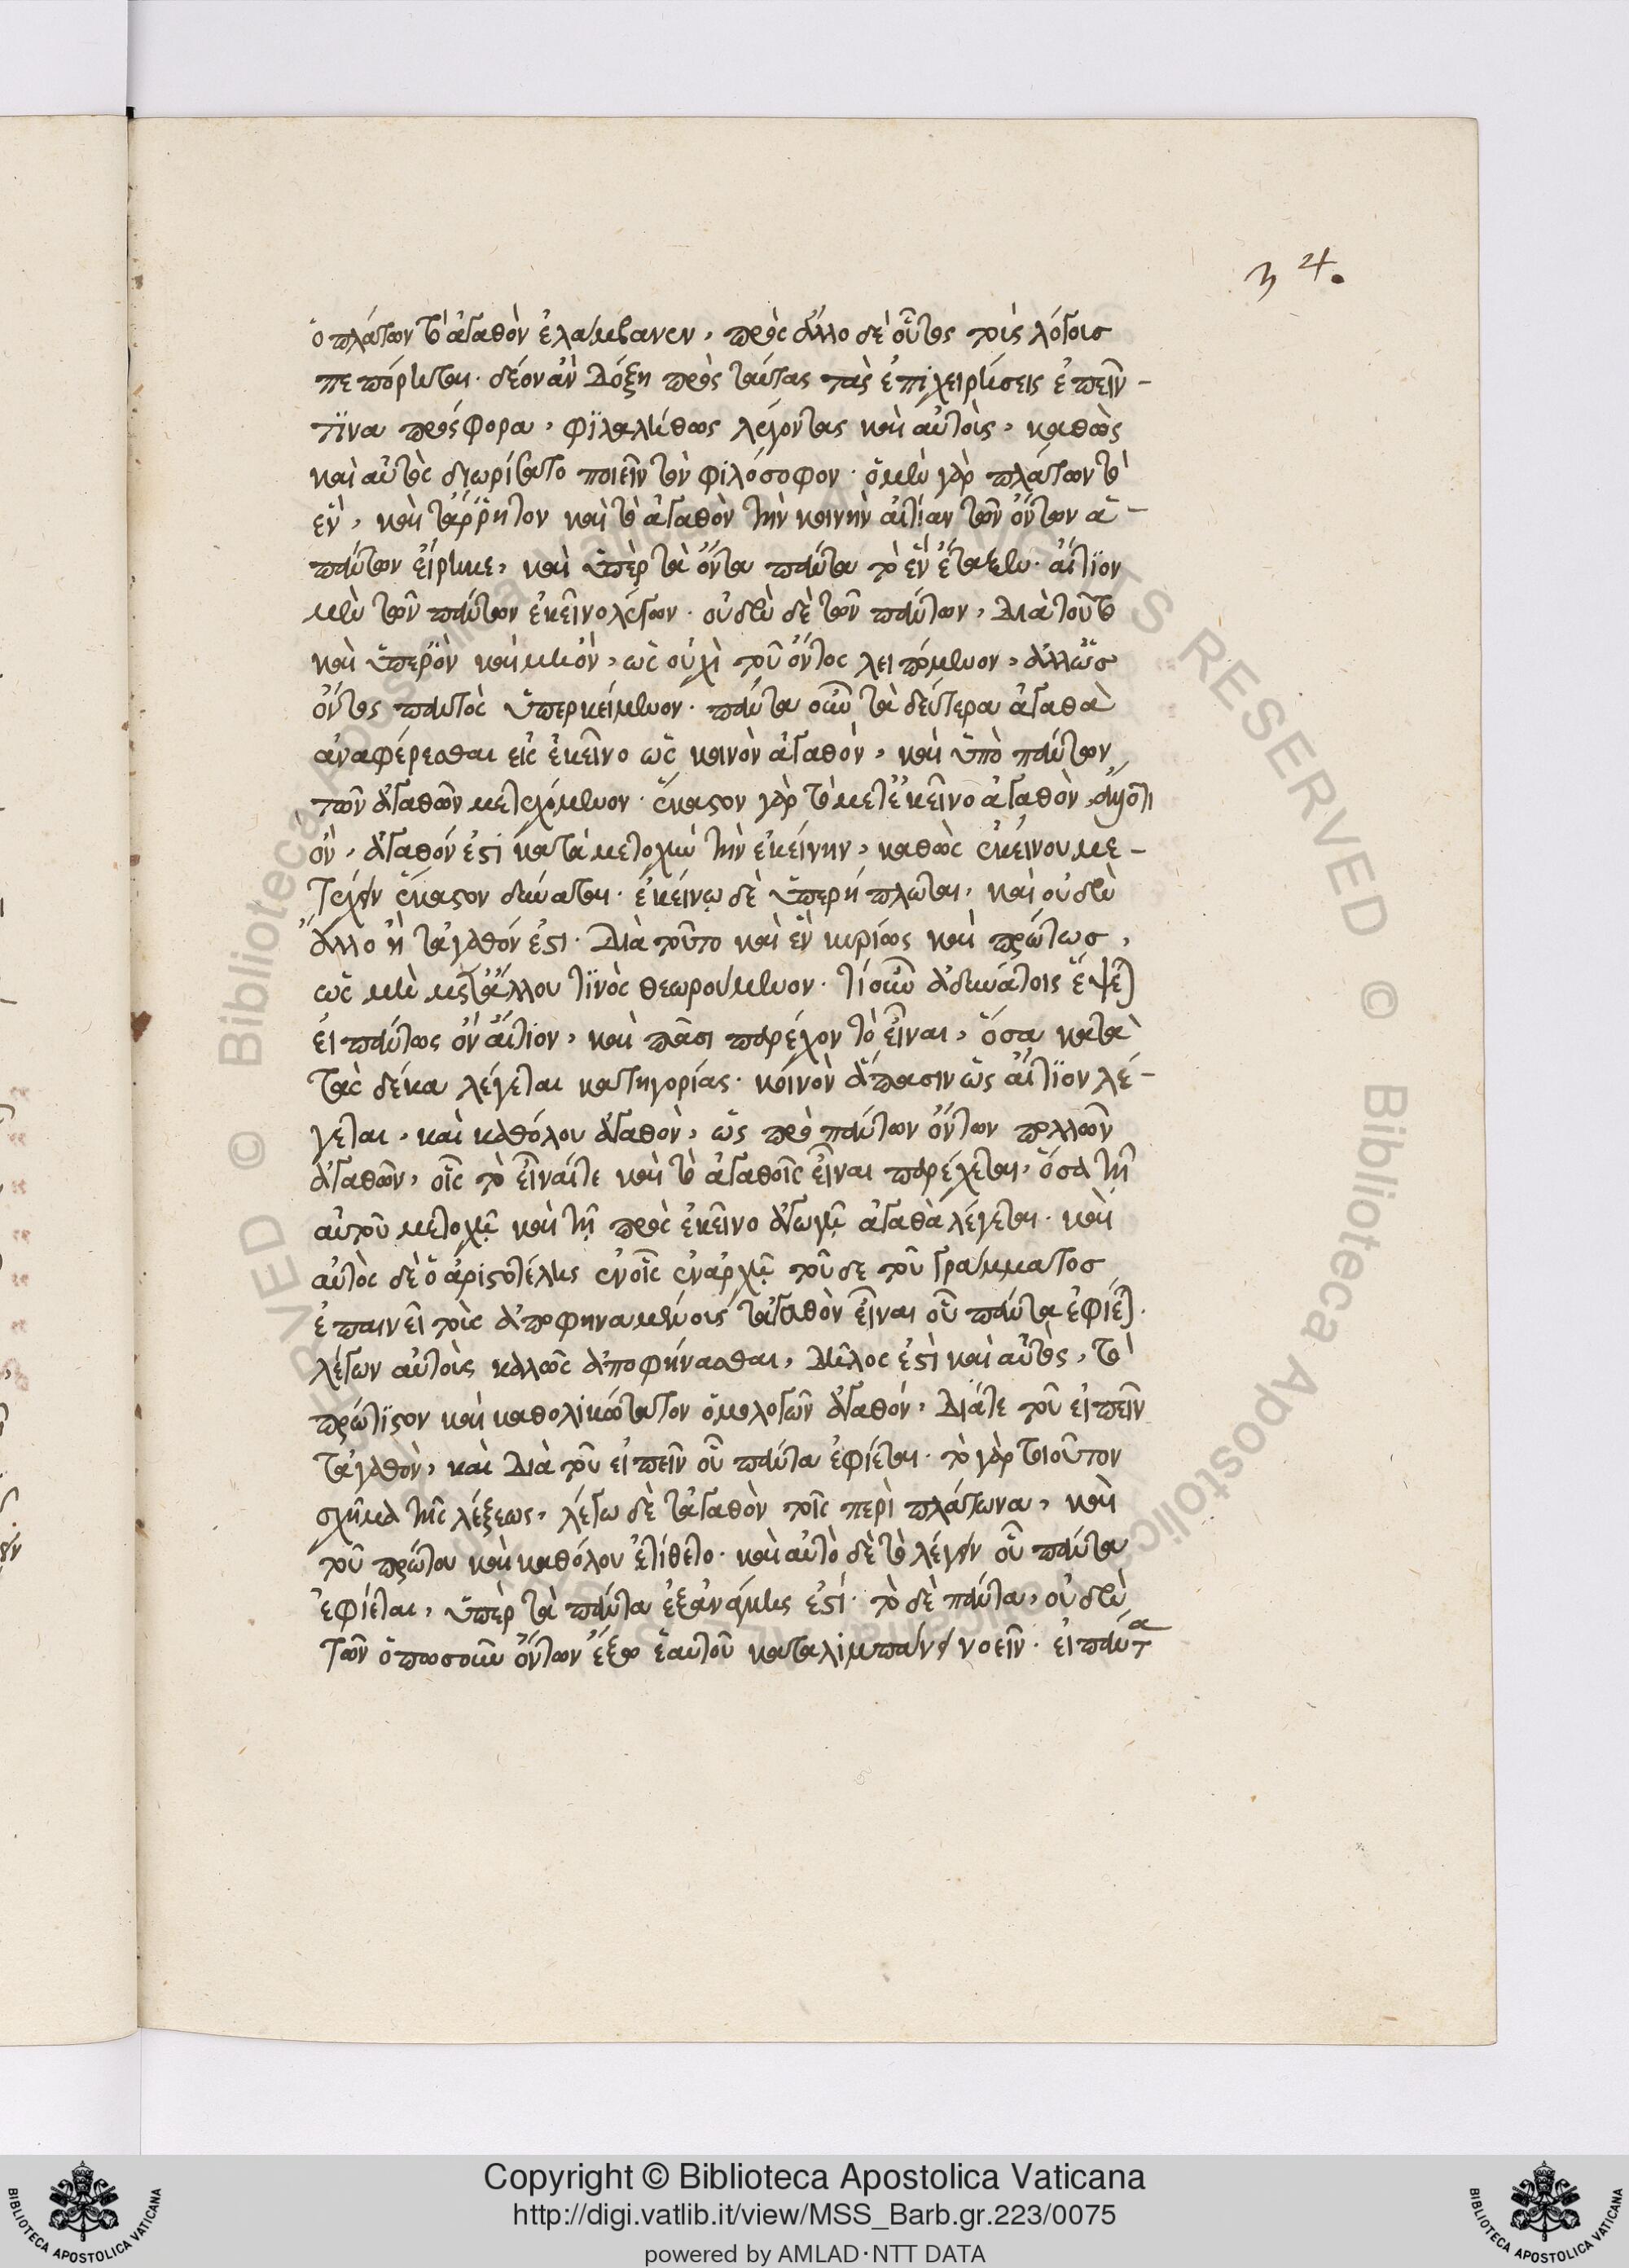 34.
ὁ πλάτων τ' ἀγαθὸν ἐλάμβανεν, πρὸς ἄλλο δὲ οὗτος τοῖς λόγοις
πεπόρηται· δέον ἂν δόξη πρὸς ταύτας τὰς ἐπιχειρήσεις εἰπεῖν -
τϊνα πρόσφορα, φϊλαλήθως λέγοντας καὶ αὐτοῖς, καθὼς
καὶ αὐτὸς διωρίσατο ποιεῖν τὸν φιλόσοφον· ὁ μὲν γὰρ πλάτων τὸ
ἓν, καὶ τἄρρητον καὶ τὸ ἀγαθὸν τὴν κοινὴν αἰτίαν τῶν ὄντων ἁ -
πάντων εἴρηκε, καὶ ὑπὲρ τὰ ὄντα πάντα τὸ ἓν ἔταξεν· αἴτϊον
μὲν τῶν πάντων ἐκεῖνο λέγων· οὐδὲν δὲ τῶν πάντων, διὰ τοῦτο
καὶ ὑπερὸν καὶ μὴ ὸν, ὡς οὐχὶ τοῦ ὄντος λειπόμενον, ἀλλ' ὡς
ὄντος παντὸς ὑπερκείμενον· πάντα οὖν τὰ δεύτερα ἀγαθὰ
ἀναφέρεσθαι εἰς ἐκεῖνο ὡς κοινὸν ἀγαθὸν, καὶ ὑπὸ πάντων
τῶν ἀγαθῶν μετεχόμενον· ἕκαστον γὰρ τὸ μετ' ἐκεῖνο ἀγαθὸν,
ὸν, ἀγαθόν ἐστι κατὰ μετοχὴν τὴν ἐκείνην, καθὼς ἐκείνου με -
τέχειν ἕκαστον δύναται· ἐκείνῳ δὲ ὑπερήπλωται, καὶ οὐδὲν
ἄλλο ἢ τἀγαθόν ἐστι· διὰ τοῦτο καὶ ἓν κυρίως καὶ πρώτως,
ὡς μὴ μετ' ἄλλου τϊνὸς θεωρούμενον· τί οὖν ἀδυνάτοις ἕψεται
εἰ πάντως ὂν αἴτιον, καὶ πᾶσι παρέχον τὸ εἶναι, ὅσα κατὰ
τὰς δέκα λέγεται κατηγορίας· κοινὸν ἅπασιν ὡς αἴτϊον λέ -
γεται, καὶ καθόλου ἀγαθὸν, ὡς πρὸ πάντων ὄντων πολλῶν
ἀγαθῶν, οἷς τὸ εἶναί τε καὶ τὸ ἀγαθοῖς εἶναι παρέχεται, ὅσα τῆ
αὐτοῦ μετοχῇ καὶ τῇ πρὸς ἐκεῖνο ἀγωγῇ ἀγαθὰ λέγεται· καὶ
αὐτὸς δὲ ὁ ἀριστοτέλης ἐν οἷς ἐν ἀρχῇ τοῦδε τοῦ γράμματος
ἐπαινεῖ τοῖς ἀποφηναμένοις τἀγαθὸν εἶναι οὗ πάντα ἐφίεται.
λέγων αὐτοῖς καλῶς ἀποφήνασθαι, δῆλος ἐστὶ καὶ αὐτὸς, τὸ
πρώτϊστον καὶ καθολικώτατον ὁμολογῶν ἀγαθόν, διάτε τοῦ εἰπεῖν
τἀγαθὸν, καὶ διὰ τοῦ εἰπεῖν οὗ πάντα ἐφίεται· τὸ γὰρ τοιοῦτον
σχῆμα τῆς λέξεως, λέγω δὲ τἀγαθὸν τοῖς περὶ πλάτωνα, καὶ
τοῦ πρώτου καὶ καθόλου ἐτίθετο· καὶ αὐτὸ δὲ τὸ λέγειν οὗ πάντα
ἐφίεται, ὑπὲρ τὰ πάντα ἐξανάγκης ἐστί· τὸ δὲ πάντα, οὐδὲν
τῶν ὁπωσοῦν ὄντων ἔξω ἑαυτοῦ καταλιμπάνει νοεῖν· εἰ πάντα
Copyright © Biblioteca Apostolica Vaticana
http://digi.vatlib.it/view/MSS_Barb.gr.223/0075
powered by AMLAD·NTT DATA